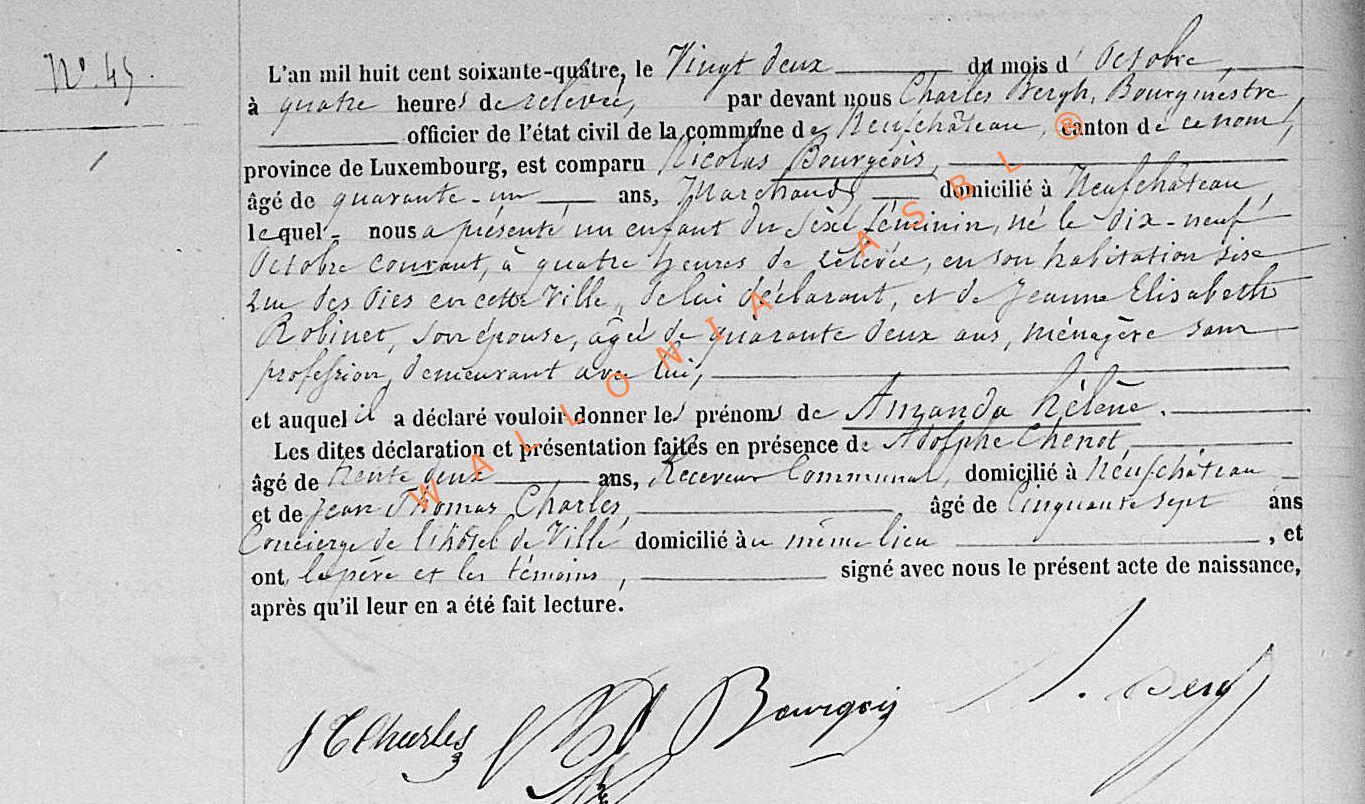 N° 45.
L'an mil huit cent soixante-quatre, le Vingt deux du mois d'Octobre,
à quatre heures de relevée, par devant nous Charles Bergh, Bourgmestre
officier de l'état civil de la commune de Neufchâteau, canton de ce nom,
province de Luxembourg, est comparu Nicolas Bourgeois,
âgé de quarante-un ans, Marchand, domicilié à Neufchâteau,
lequel nous a présenté un enfant du sèxe féminin, né le dix-neuf
Octobre courant, à quatre heures de relevée, en son habitation sise
rue des Oies en cette Ville, de lui déclarant, et de Jeanne Elisabeth
Robinet, son épouse, âgée de quarante deux ans, ménagère sans
profession, demeurant avec lui,
et auquel il a déclaré vouloir donner les prénoms de Amanda Hélène.
Les dites déclaration et présentation faites en présence de Adolphe Chenot,
âgé de trente deux ans, Receveur Communal, domicilié à Neufchâteau
et de Jean Thomas Charles, âgé de Cinquante sept ans
Concierge de l'hôtel de Ville domicilié au même lieu , et
ont, le père et les témoins, signé avec nous le présent acte de naissance,
après qu'il leur en a été fait lecture.
JTCharles Bourgois Bergh
WALLONIA ASBL ®